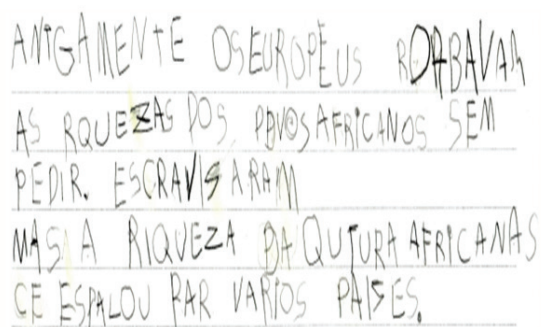 ANTGAMENTE OS EUROPEUS ROABAVAM
AS RQUEZAS DOS POVOS AFRICANOS SEM
PEDIR. ESCRAVISARAM
MAS A RIQUEZA DA QUTURA AFRICANAS
CE ESPALOU PAR VARIOS PAISES.